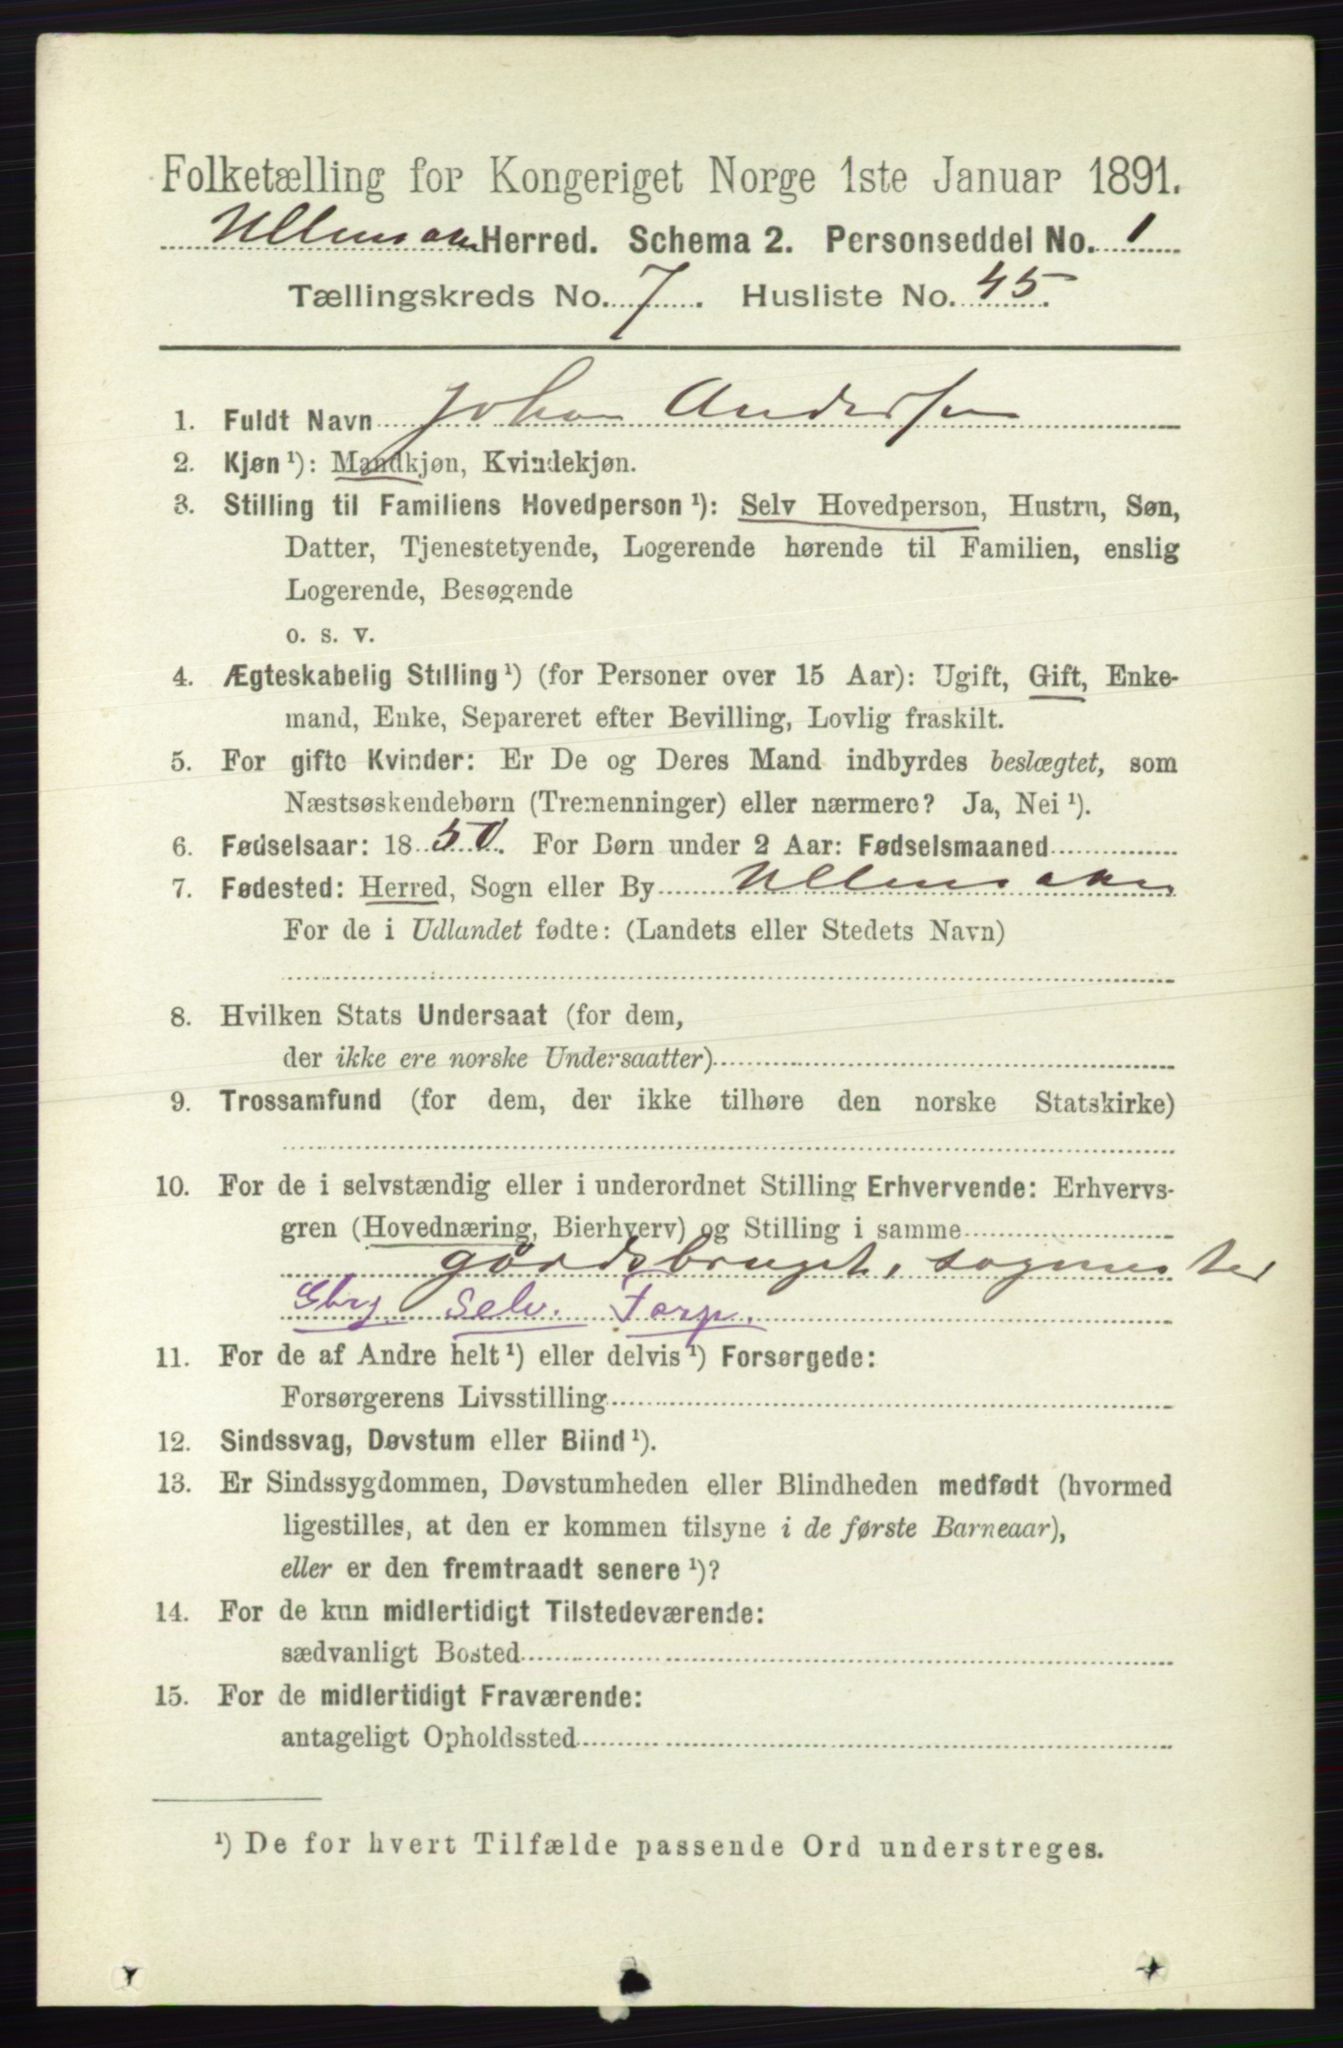 Folketælling for Kongeriget Norge 1ste Januar 1891.
Ullensaker Herred. Schema 2. Personseddel No. 1
Tællingskreds No. 7. Husliste No. 45.
1. Fuldt Navn Johan Andersen
2. Kjøn ¹): Mandkjøn, Kvindekjøn.
3. Stilling til Familiens Hovedperson ¹): Selv Hovedperson, Hustru, Søn,
Datter, Tjenestetyende, Logerende hørende til Familien, enslig
Logerende, Besøgende
o. s. v.
4. Ægteskabelig Stilling ¹) (for Personer over 15 Aar): Ugift, Gift, Enke-
mand, Enke, Separeret efter Bevilling, Lovlig fraskilt.
5. For gifte Kvinder: Er De og Deres Mand indbyrdes beslægtet, som
Næstsøskendebørn (Tremenninger) eller nærmere? Ja, Nei ¹).
6. Fødselsaar: 1850. For Børn under 2 Aar: Fødselsmaaned
7. Fødested: Herred, Sogn eller By Ullensaker
For de i Udlandet fødte: (Landets eller Stedets Navn)
8. Hvilken Stats Undersaat (for dem,
der ikke ere norske Undersaatter)
9. Trossamfund (for dem, der ikke tilhøre den norske Statskirke)
10. For de i selvstændig eller i underordnet Stilling Erhvervende: Erhvervs-
gren (Hovednæring, Bierhverv) og Stilling i samme
gårdsbruget,
Gbrg Selv. Torp.
11. For de af Andre helt ¹) eller delvis ¹) Forsørgede:
Forsørgerens Livsstilling
12. Sindssvag, Døvstum eller Blind ¹).
13. Er Sindssygdommen, Døvstumheden eller Blindheden medfødt (hvormed
ligestilles, at den er kommen tilsyne i de første Barneaar),
eller er den fremtraadt senere ¹)?
14. For de kun midlertidigt Tilstedeværende:
sædvanligt Bosted
15. For de midlertidigt Fraværende:
antageligt Opholdssted
¹) De for hvert Tilfælde passende Ord understreges.